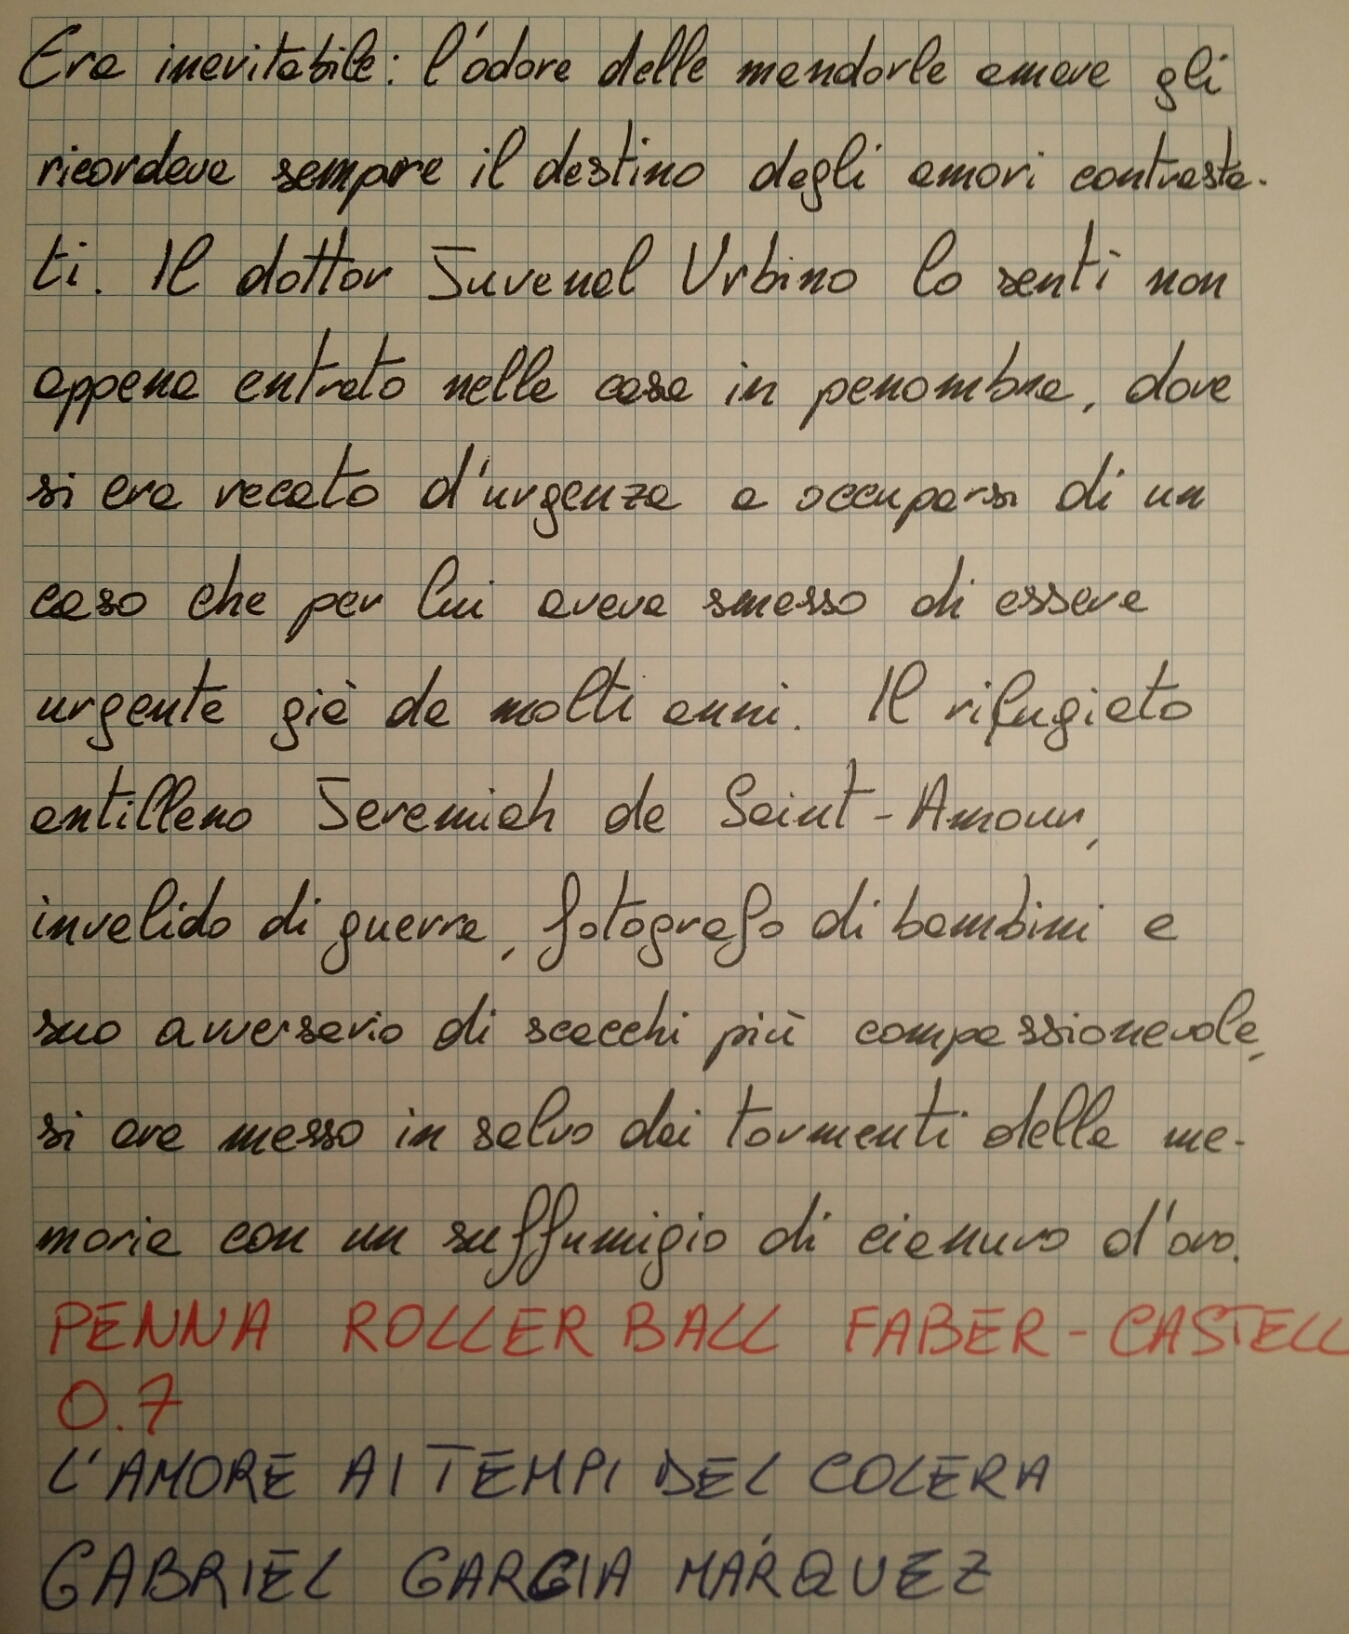 Era inevitabile: l'odore delle mandorle amare gli
ricordava sempre il destino degli amori contrasta-
ti. Il dottor Juvenal Urbino lo sentì non
appena entrato nella casa in penombra, dove
si era recato d'urgenza a occuparsi di un
caso che per lui aveva smesso di essere
urgente già da molti anni. Il rifugiato
antillano Jeremiah de Saint-Amour,
invalido di guerra, fotografo di bambini e
suo avversario di scacchi più compassionevole,
si era messo in salvo dai tormenti della me-
moria con un suffumigio di cianuro d'oro.
PENNA ROLLER BALL FABER-CASTELL
0.7
L'AMORE AI TEMPI DEL COLERA
GABRIEL GARCIA MÁRQUEZ